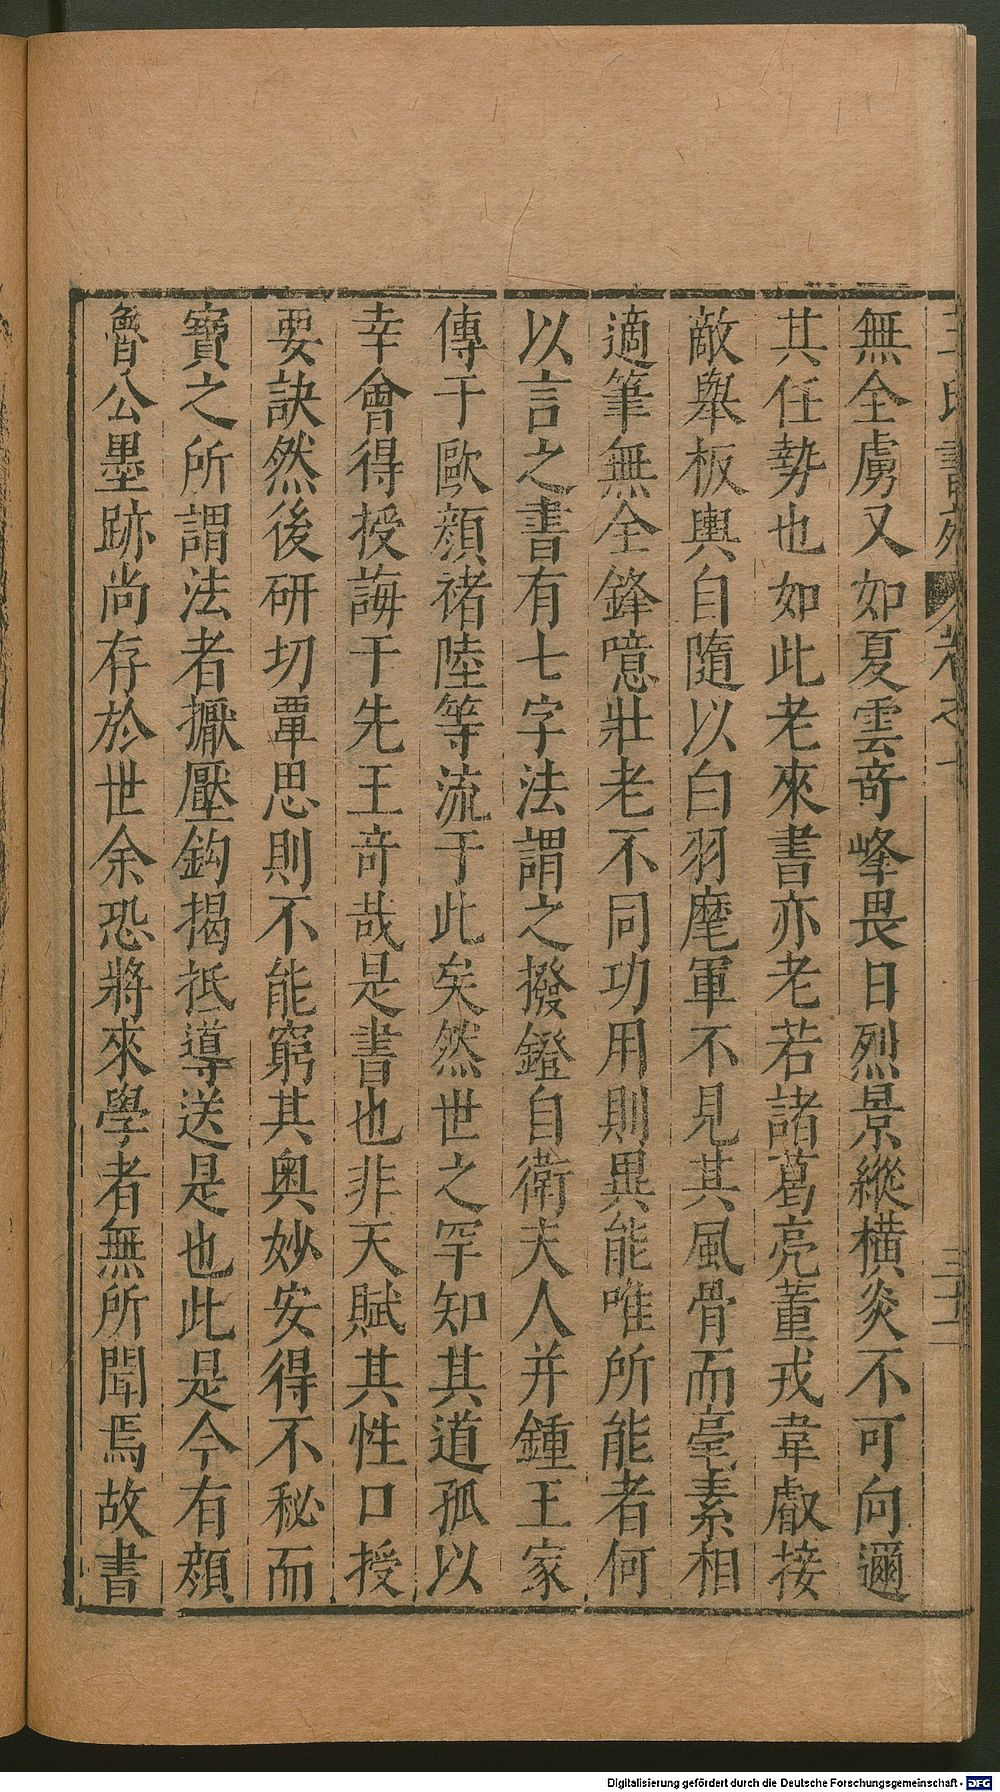 王氏書苑 卷之十 三十二
無全虜又如夏雲奇峰畏日烈景縱橫炎炎不可向邇
其任勢也如此老來書亦老若諸葛亮董戎韋叡接
敵舉板輿自隨以白羽麾軍不見其風骨而毫素相
適筆無全鋒噫壯老不同功用則異能唯所能者何
以言之書有七字法謂之撥鐙自衛夫人并鍾王家
傳于歐顏褚陸等流于此矣然世之罕知其道孤以
幸會得授誨于先王奇哉是書也非天賦其性口授
要訣然後研切覃思則不能窮其奧妙安得不秘而
寶之所謂法者擫壓鈎揭抵導送是也此是今有顏
魯公墨跡尚存於世余恐將來學者無所聞焉故書
Digitalisierung gefördert durch die Deutsche Forschungsgemeinschaft - DFG